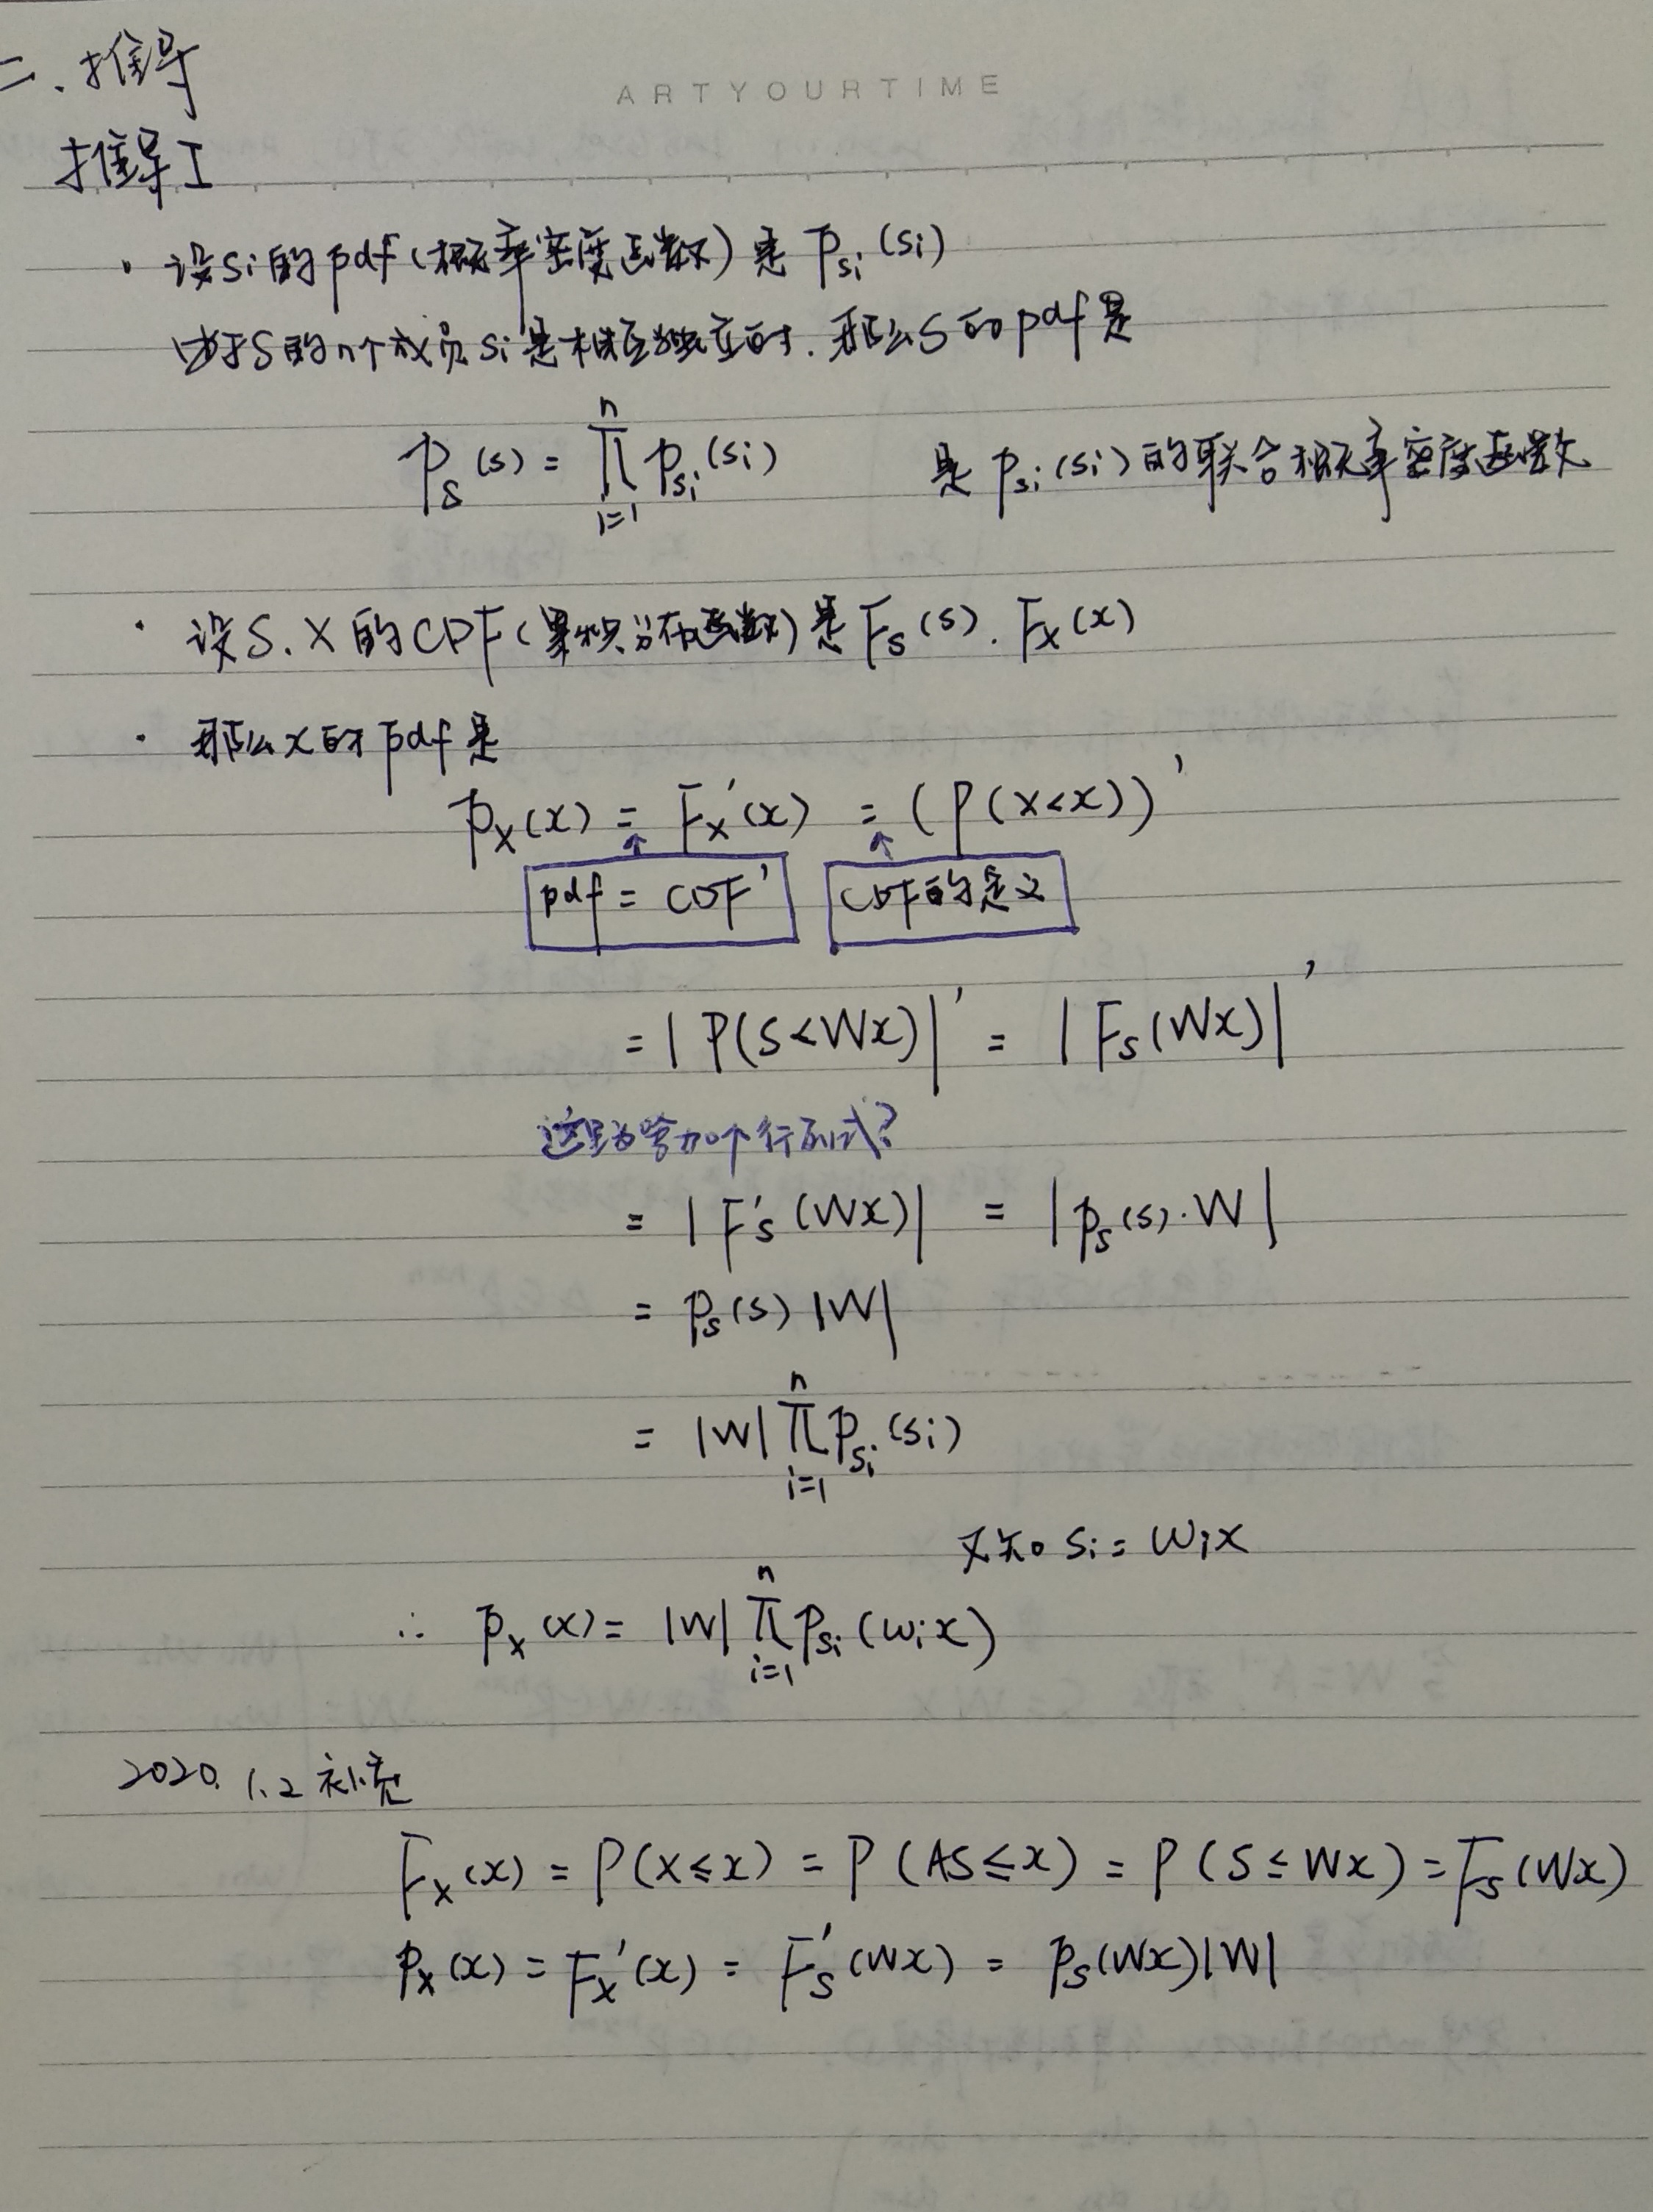 二.推导
ARTYOURTIME
推导I
· 设si的pdf(概率密度函数)是 p_{si}(si)
由于S的n个成员si是相互独立的.那么S的pdf是
p_s(s) = ∏_{i=1}^{n} p_{si}(si) 是 p_{si}(si)的联合概率密度函数
· 设S.X的CDF(累积分布函数)是 F_S(s). F_X(x)
· 那么x的pdf是
p_X(x) = F_X'(x) = (P(X<x))'
↑ ↑
pdf = CDF' CDF的定义
= |P(S<Wx)|' = |F_S(Wx)|'
这里为啥加个行列式?
= |F'_S(Wx)| = |p_s(s)·W|
= p_s(s)|W|
= |W| ∏_{i=1}^{n} p_{si}(si)
又知 si = wix
∴ p_x(x) = |W| ∏_{i=1}^{n} p_{si}(wix)
2020.1.2补充
F_X(x) = P(X≤x) = P(AS≤x) = P(S≤Wx) = F_S(Wx)
p_X(x) = F_X'(x) = F_S'(Wx) = p_S(Wx)|W|